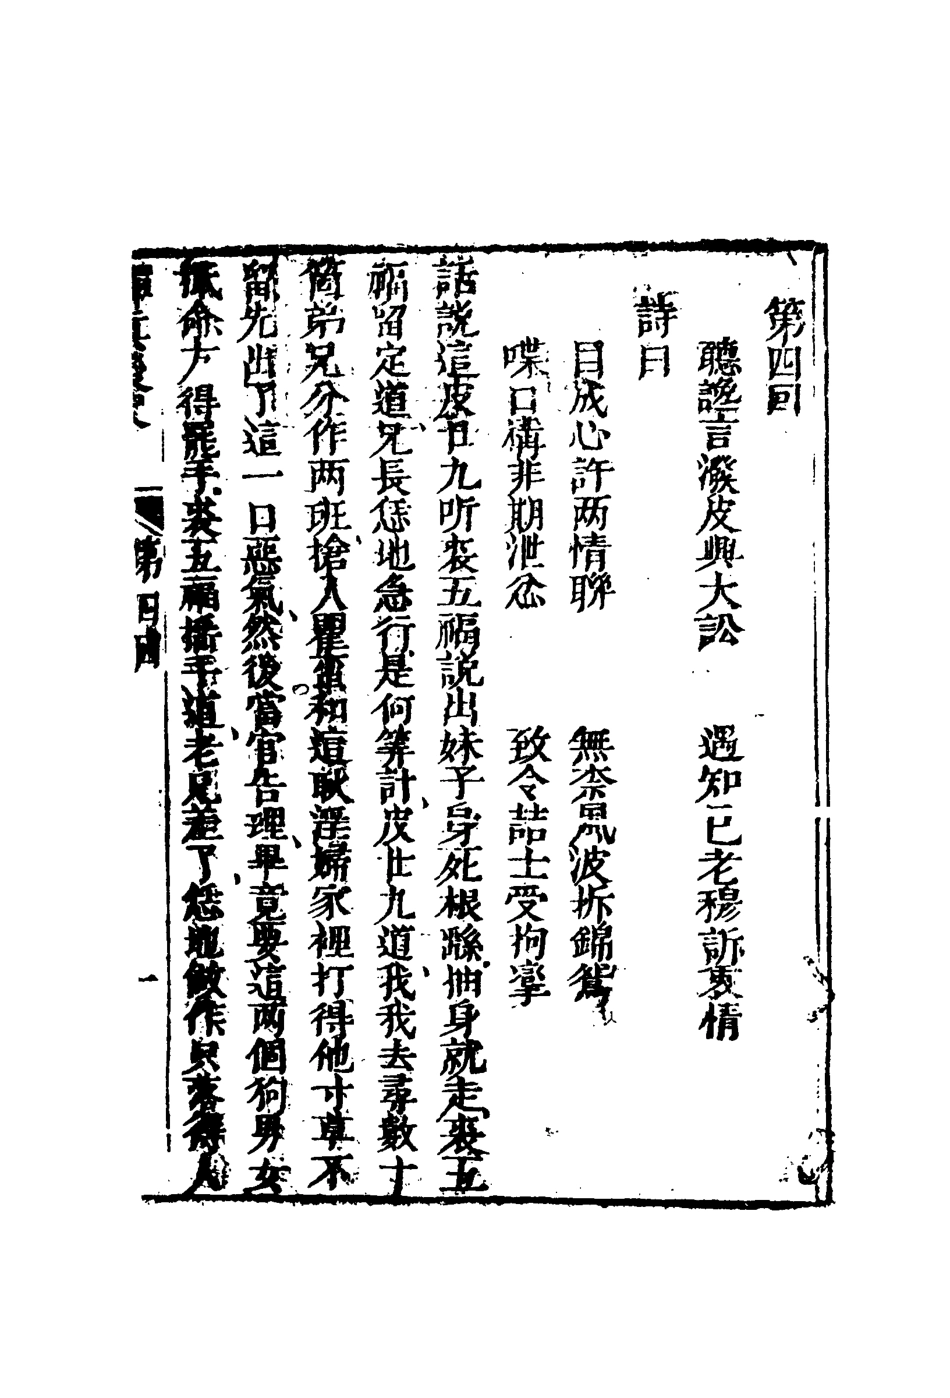 第四回
聽讒言潑皮興大訟　遇知已老穆訴衷情
詩曰
目成心許两情聯　無柰風波拆錦鴛
喋口構非期泄忿　致令詰士受拘攣
話説這皮廿九听裘五福説出妹子身死根繇抽身就走裘五
福留定道兄長恁地急行是何等計皮廿九道我我去尋數十
箇弟兄分作两班搶入瞿家和這耿淫婦家裡打得他寸草不
留先出了這一口惡氣然後當官告理畢竟要這两個狗男女
抵命方得罷手裘五福搖手道老兄差了恁地做作只落得人
後史　第四回　一